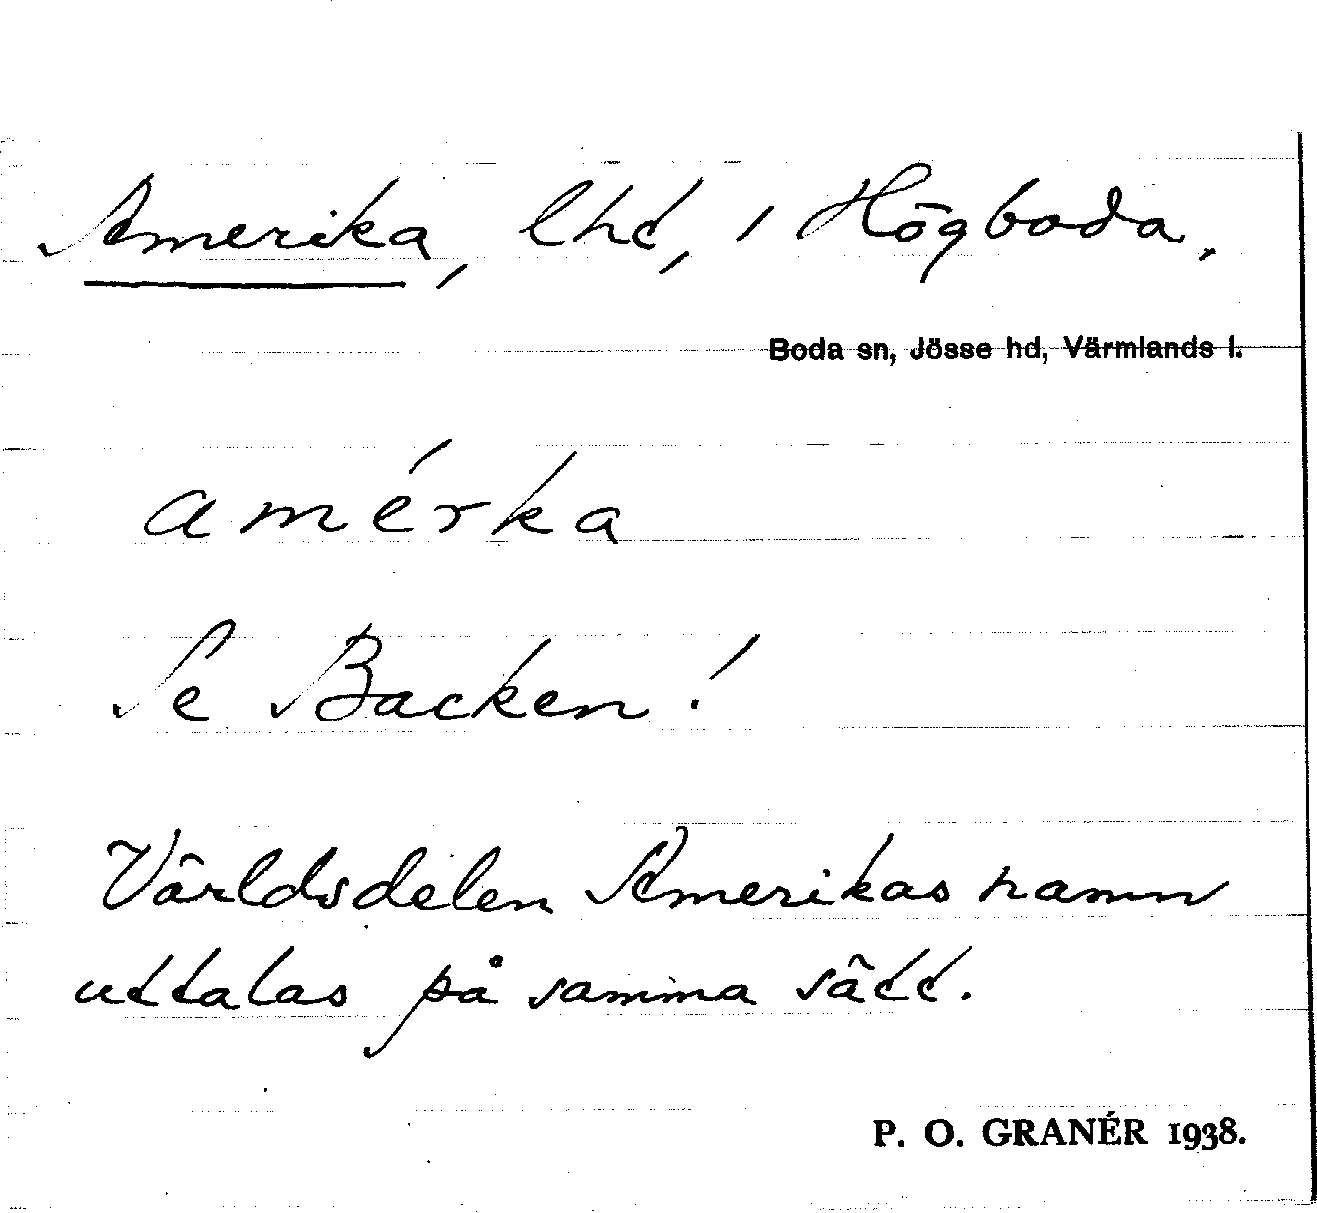 Amerika, lht, i Högboda.
Boda sn, Jösse hd, Värmlands l.
amérka
Se Backen!
Världsdelen Amerikas namn
uttalas på samma sätt.
P. O. GRANÉR 1938.